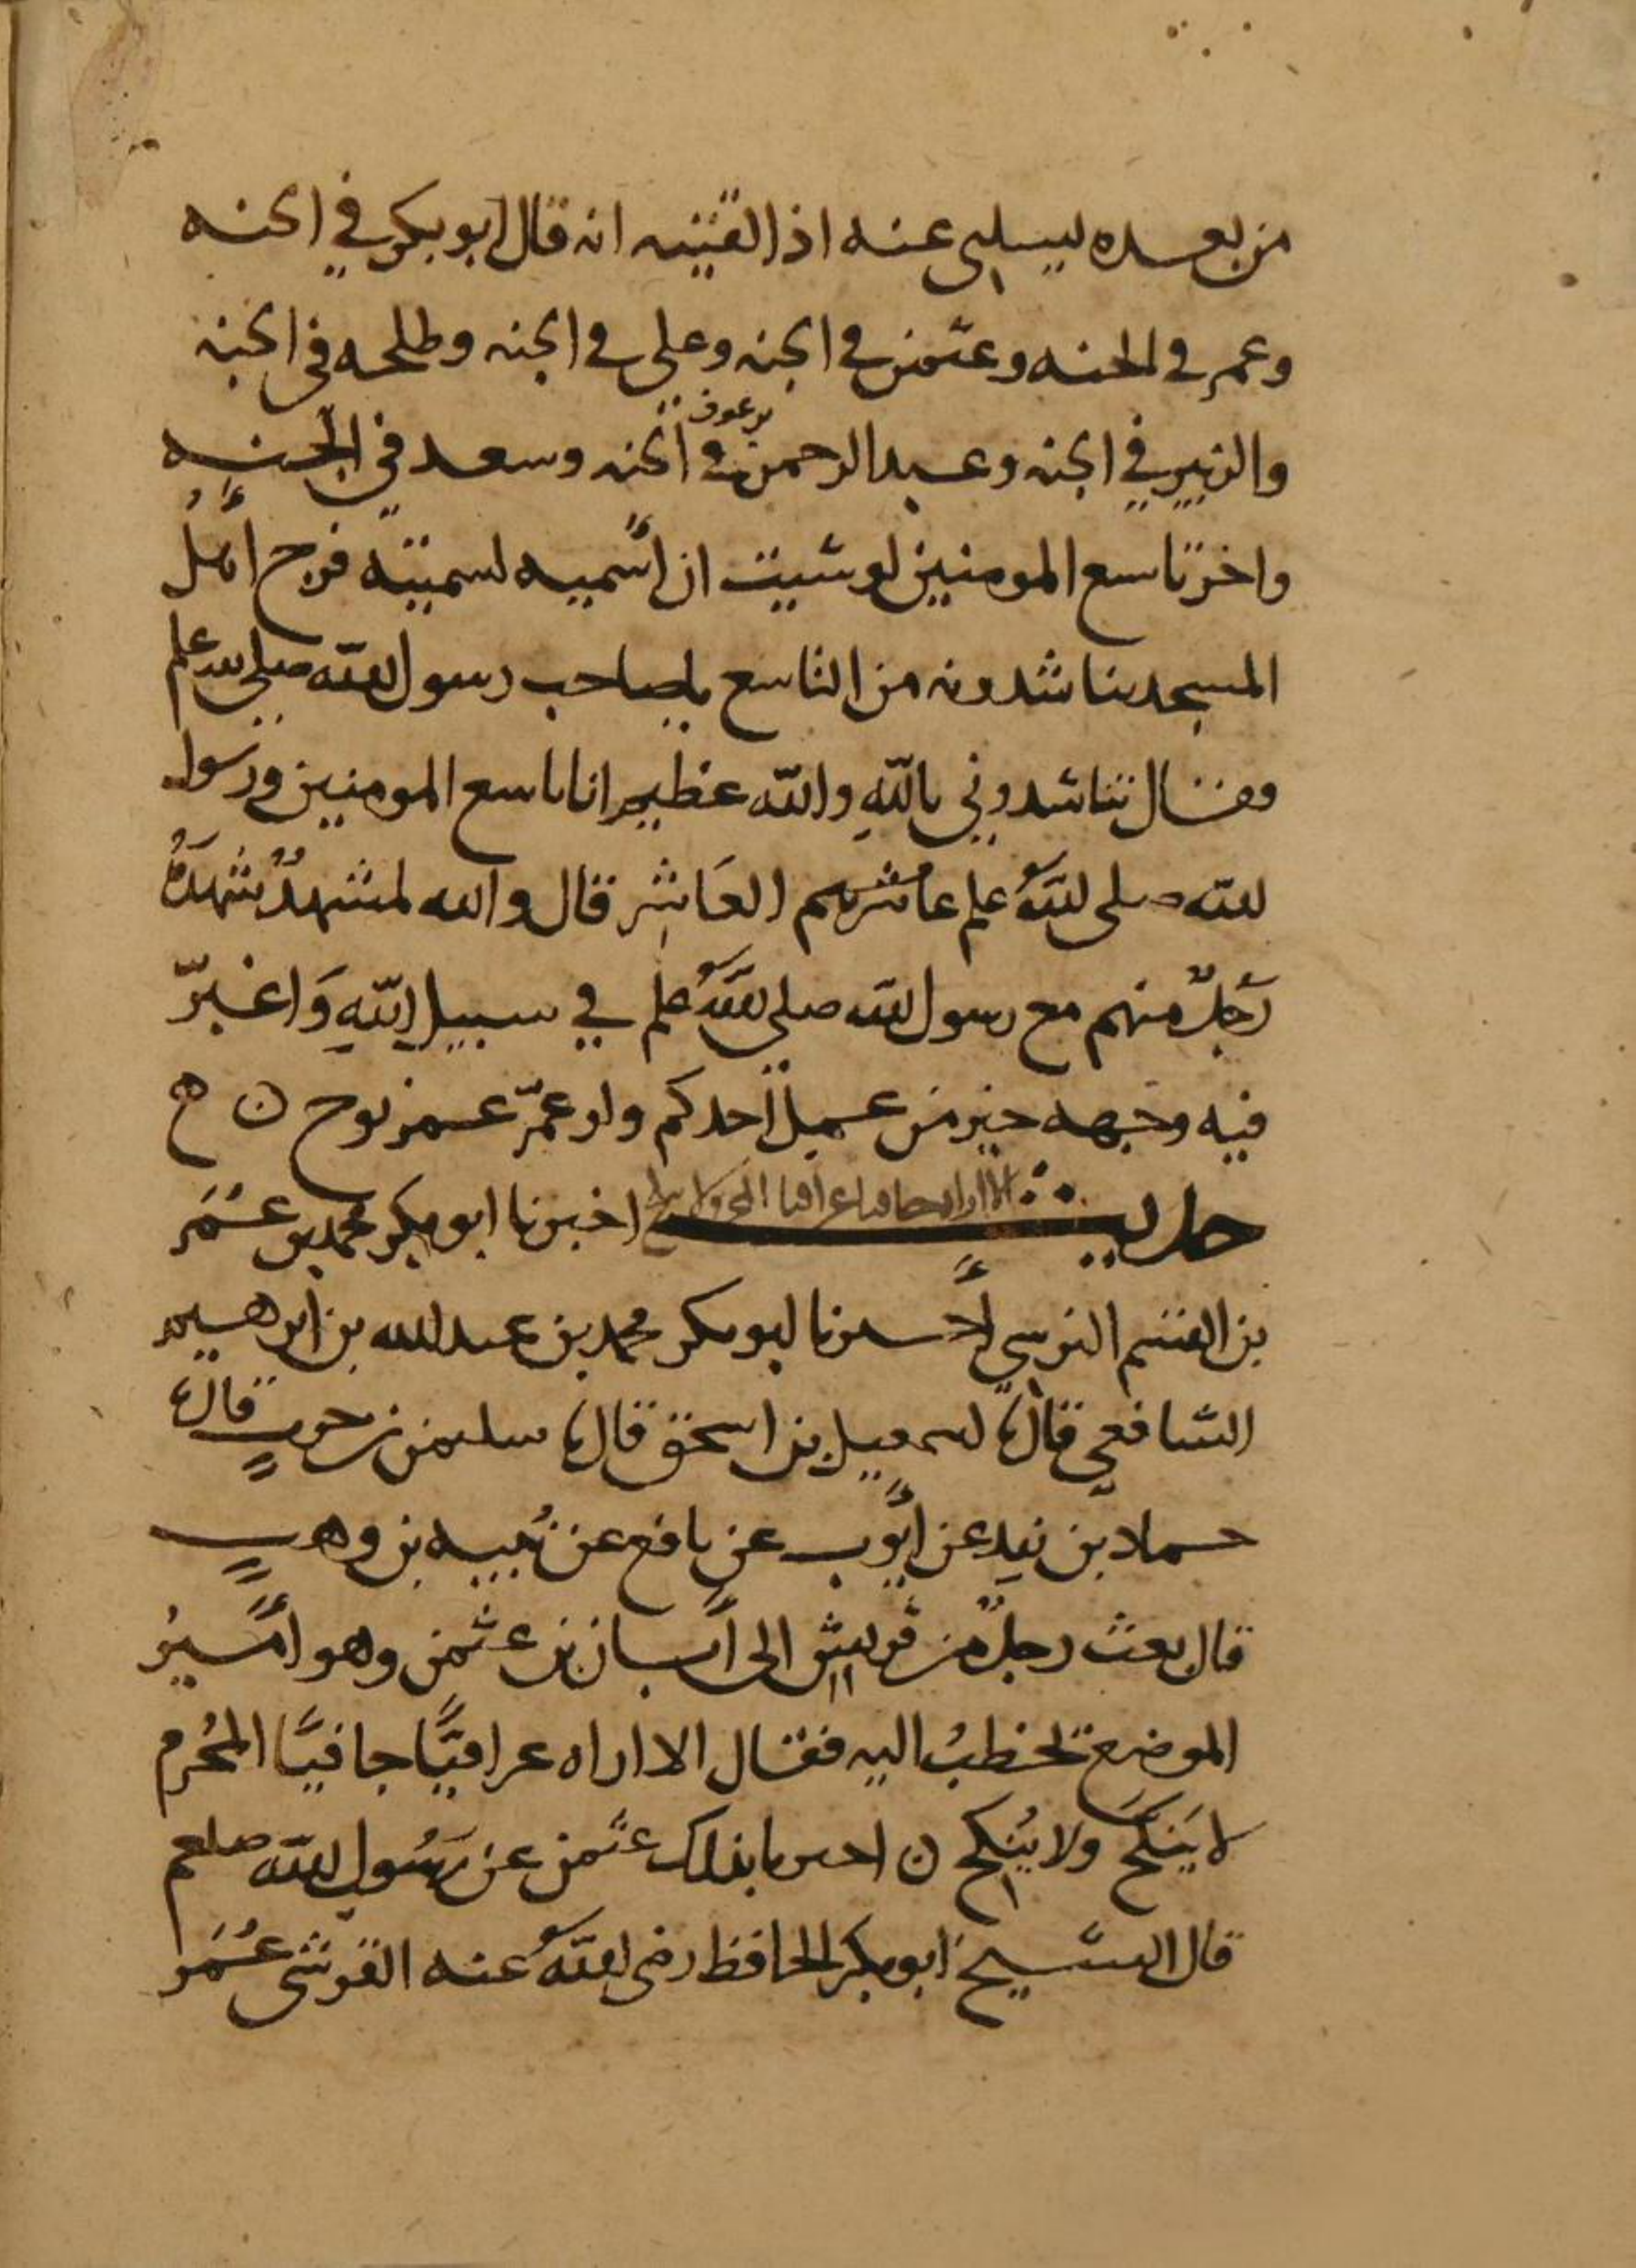 من بعده ليسلني عنه اذا لقيته انه قال ابو بكر في الجنه
وعمر في الجنه وعثمن في الجنه وعلي في الجنه وطلحه في الجنه
والزبير في الجنه وعبد الرحمن بن عوف في الجنه وسعد في الجنه
واخر تاسع المومنين لو شيت ان أسميه لسميته فرج أهلُ
المسجد يناشدونه من التاسع يا صاحب رسول الله صلى الله علم
فقال تناشدوني باللهِ والله عظيم انا تاسع المومنين ورسول
الله صلى اللهُ علم عاشرهم العَاشر قال والله لمشهدٌ شهدَهُ
رَجلٌ منهم مع رسول الله صلى اللهُ علم في سبيل اللهِ وَاغبرّ
فيه وجهه خير من عمل أحدكم ولو عمّر عمر نوح ن ح
حديث الا اراه جافيا عراقيا المحرم لا ينكح اخبرنا ابو بكر محمد بن عُمَر
بن القسم النرسي أخبرنا ابو بكر محمد بن عبد الله بن ابرهيم
الشافعي قال نا اسمعيل بن اسحق قال نا سليمن بن حربٍ قال نا
حماد بن زيد عن أيّوب عن نافع عن نُبيه بن وهبٍ
قال بعث رجلٌ من قريش الى أبان بن عثمن وهو أميرُ
الموضع يخطبُ اليه فقال الا اراه عراقيًّا جافيًا المُحرم
لا يَنكحَ ولا يُنكح ن اخبرنا بذلك عثمن عن رسُول الله صلعم
قال الشيخ ابو بكر الحافظ رضى اللهُ عنه القرشى عُمَر